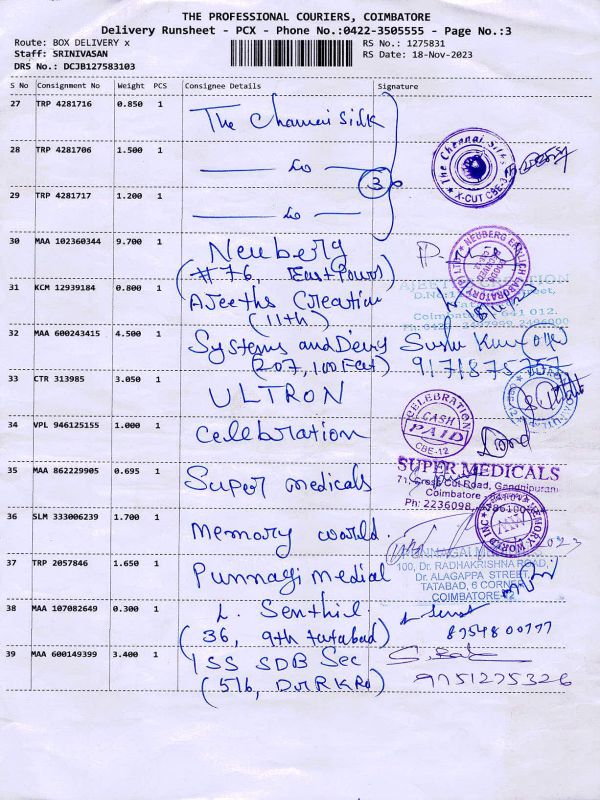 THE PROFESSIONAL COURIERS, COIMBATORE
Delivery Runsheet - PCX - Phone No.:0422-3505555 - Page No.:3
Route: BOX DELIVERY x
RS No.: 1275831
Staff: SRINIVASAN
RS Date: 18-Nov-2023
DRS No.: DCJB127583103
S No Consignment No Weight PCS Consignee Details Signature
27 TRP 4281716 0.850 1 The Chennai Silk
28 TRP 4281706 1.500 1
3
The Chennai Silk
X-CUT CBE-
29 TRP 4281717 1.200 1
30 MAA 102360344 9.700 1 Neuberg
(#76, East Power)
NEUBERG EHRLICH LABORATORY (P) LTD
31 KCM 12939184 0.800 1 Ajeeths Creation
(11th)
Coimbatore - 641 012.
32 MAA 600243415 4.500 1 Systems and
(207, 100 Feet)
33 CTR 313985 3.050 1 ULTRON
34 VPL 946125155 1.000 1 Celebration
CELEBRATION
CASH
PAID
CBE-12
35 MAA 862229905 0.695 1 Super medicals
SUPER MEDICALS
71, Cross Cut Road, Gandhipuram
Coimbatore -
Ph: 2236098,
36 SLM 333006239 1.700 1 Memory world.
MEMORY WORLD INC
37 TRP 2057846 1.650 1 Punnagi Medial
100, Dr. RADHAKRISHNA ROAD,
Dr. ALAGAPPA STREET,
TATABAD, 6 CORNER
COIMBATORE-12
38 MAA 107082649 0.300 1 L. Senthil.
(36, 9th tatabad)
39 MAA 600149399 3.400 1 ISS SDB Sec
(516, D.r R K Rd)
9751275326